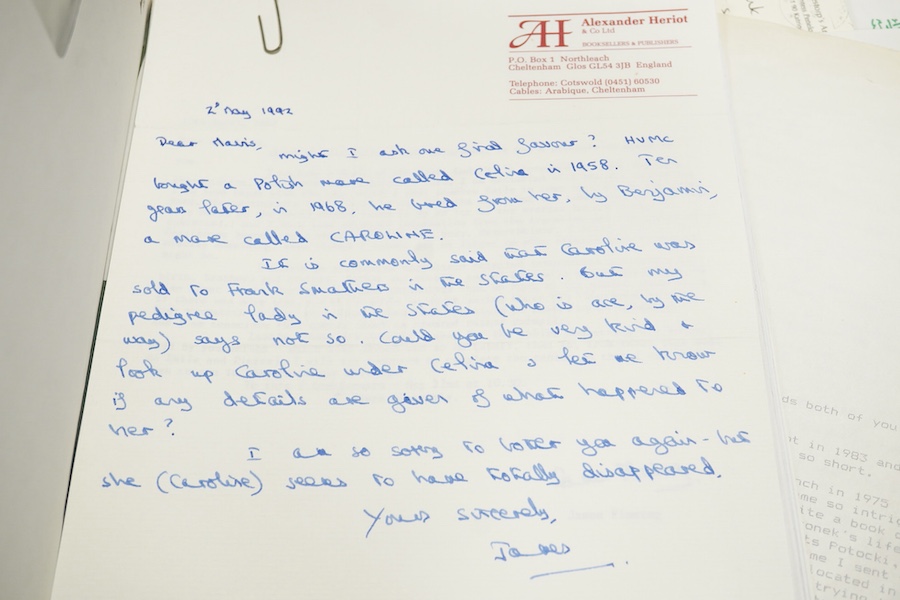 AH Alexander Heriot
& Co Ltd
BOOKSELLERS & PUBLISHERS
P.O. Box 1 Northleach
Cheltenham Glos GL54 3JB England
Telephone: Cotswold (0451) 60530
Cables: Arabique, Cheltenham
2 May 1992
Dear Mavis,
might I ask one final favour? HVMC
bought a Polish mare called Celina in 1958. Ten
years later, in 1968, he bred from her, by Benjamin,
a mare called CAROLINE.
It is commonly said that Caroline was
sold to Frank Smathers in the States. But my
pedigree lady in the States (who is ace, by the
way) says not so. Could you be very kind &
look up Caroline under Celina & let me know
if any details are given of what happened to
her?
I am so sorry to bother you again - but
she (Caroline) seems to have totally disappeared.
Yours sincerely,
James
ds both of you
t in 1983 and
so short.
nch in 1975
me so intri
ite a book
onek's life
ts Potocki,
me I sent
located in
trying